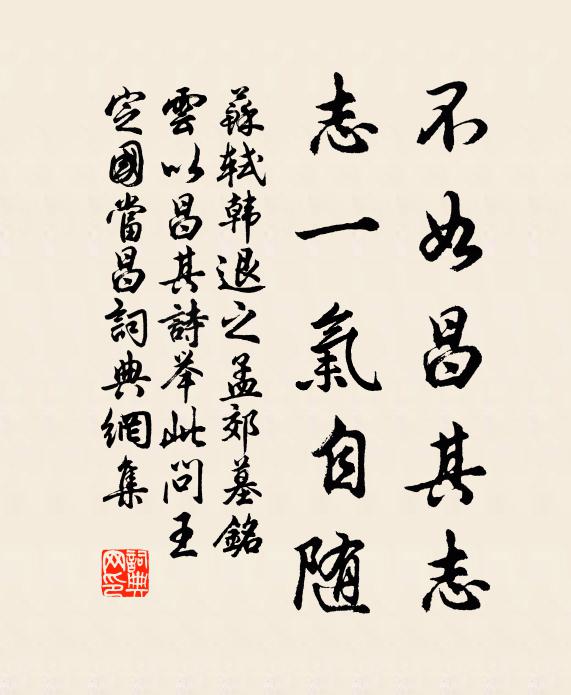 不如昌其志
志一氣自随
蘇軾韓退之孟郊墓銘
雲以昌其詩举此問王
定國當昌詞典網集
詞典网印